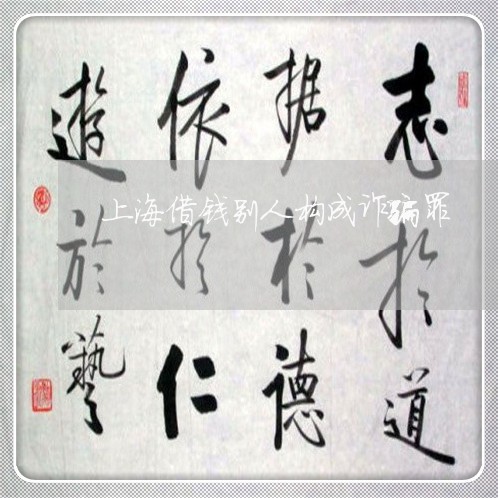 志於道
据於德
依於仁
遊於藝
上海借钱别人构成诈骗罪